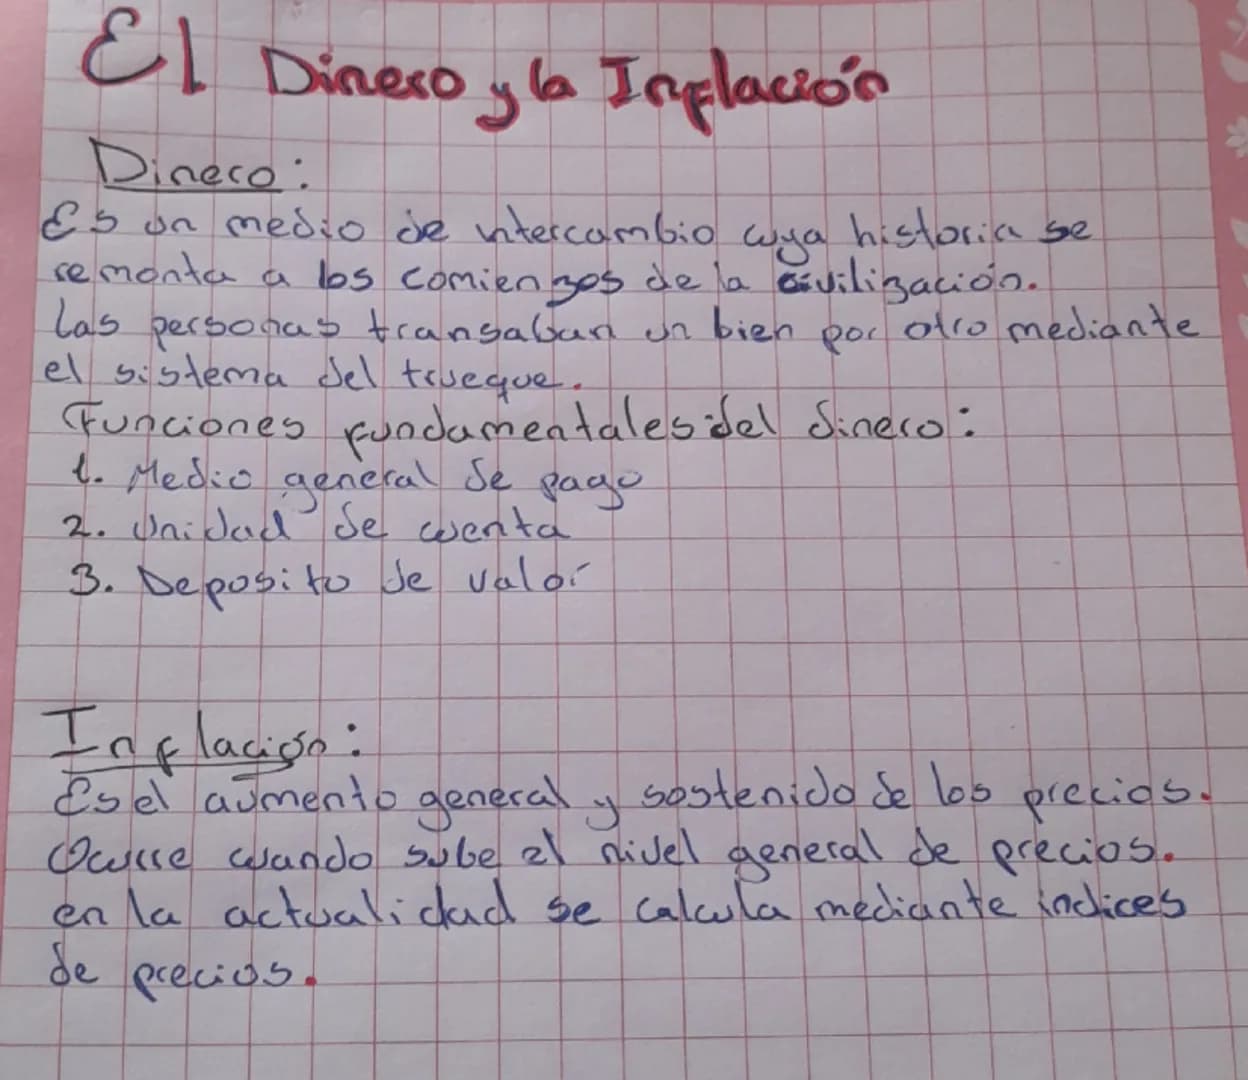 El Dinero y la Inflación
Dinero:
Es un medio de intercambio cuya historia se
remonta a los comienzos de la civilización.
Las personas transaban un bien por otro mediante
el sistema del trueque.
Funciones fundamentales del dinero:
1. Medio general de pago
2. Unidad de cuenta
3. Deposito de valor
Inflación:
Es el aumento general y sostenido de los precios.
Ocurre cuando sube el nivel general de precios.
en la actualidad se calcula mediante indices
de precios.